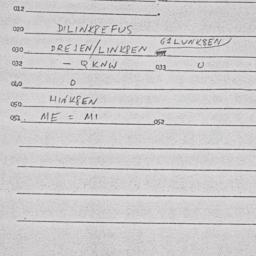 012
020 DILINKSEFUS
030 DRESEN/LINKSEN GELUNKSEN
032 - QKNW 033 U
040 O
050 MINKSEN
052. ME = MI 052